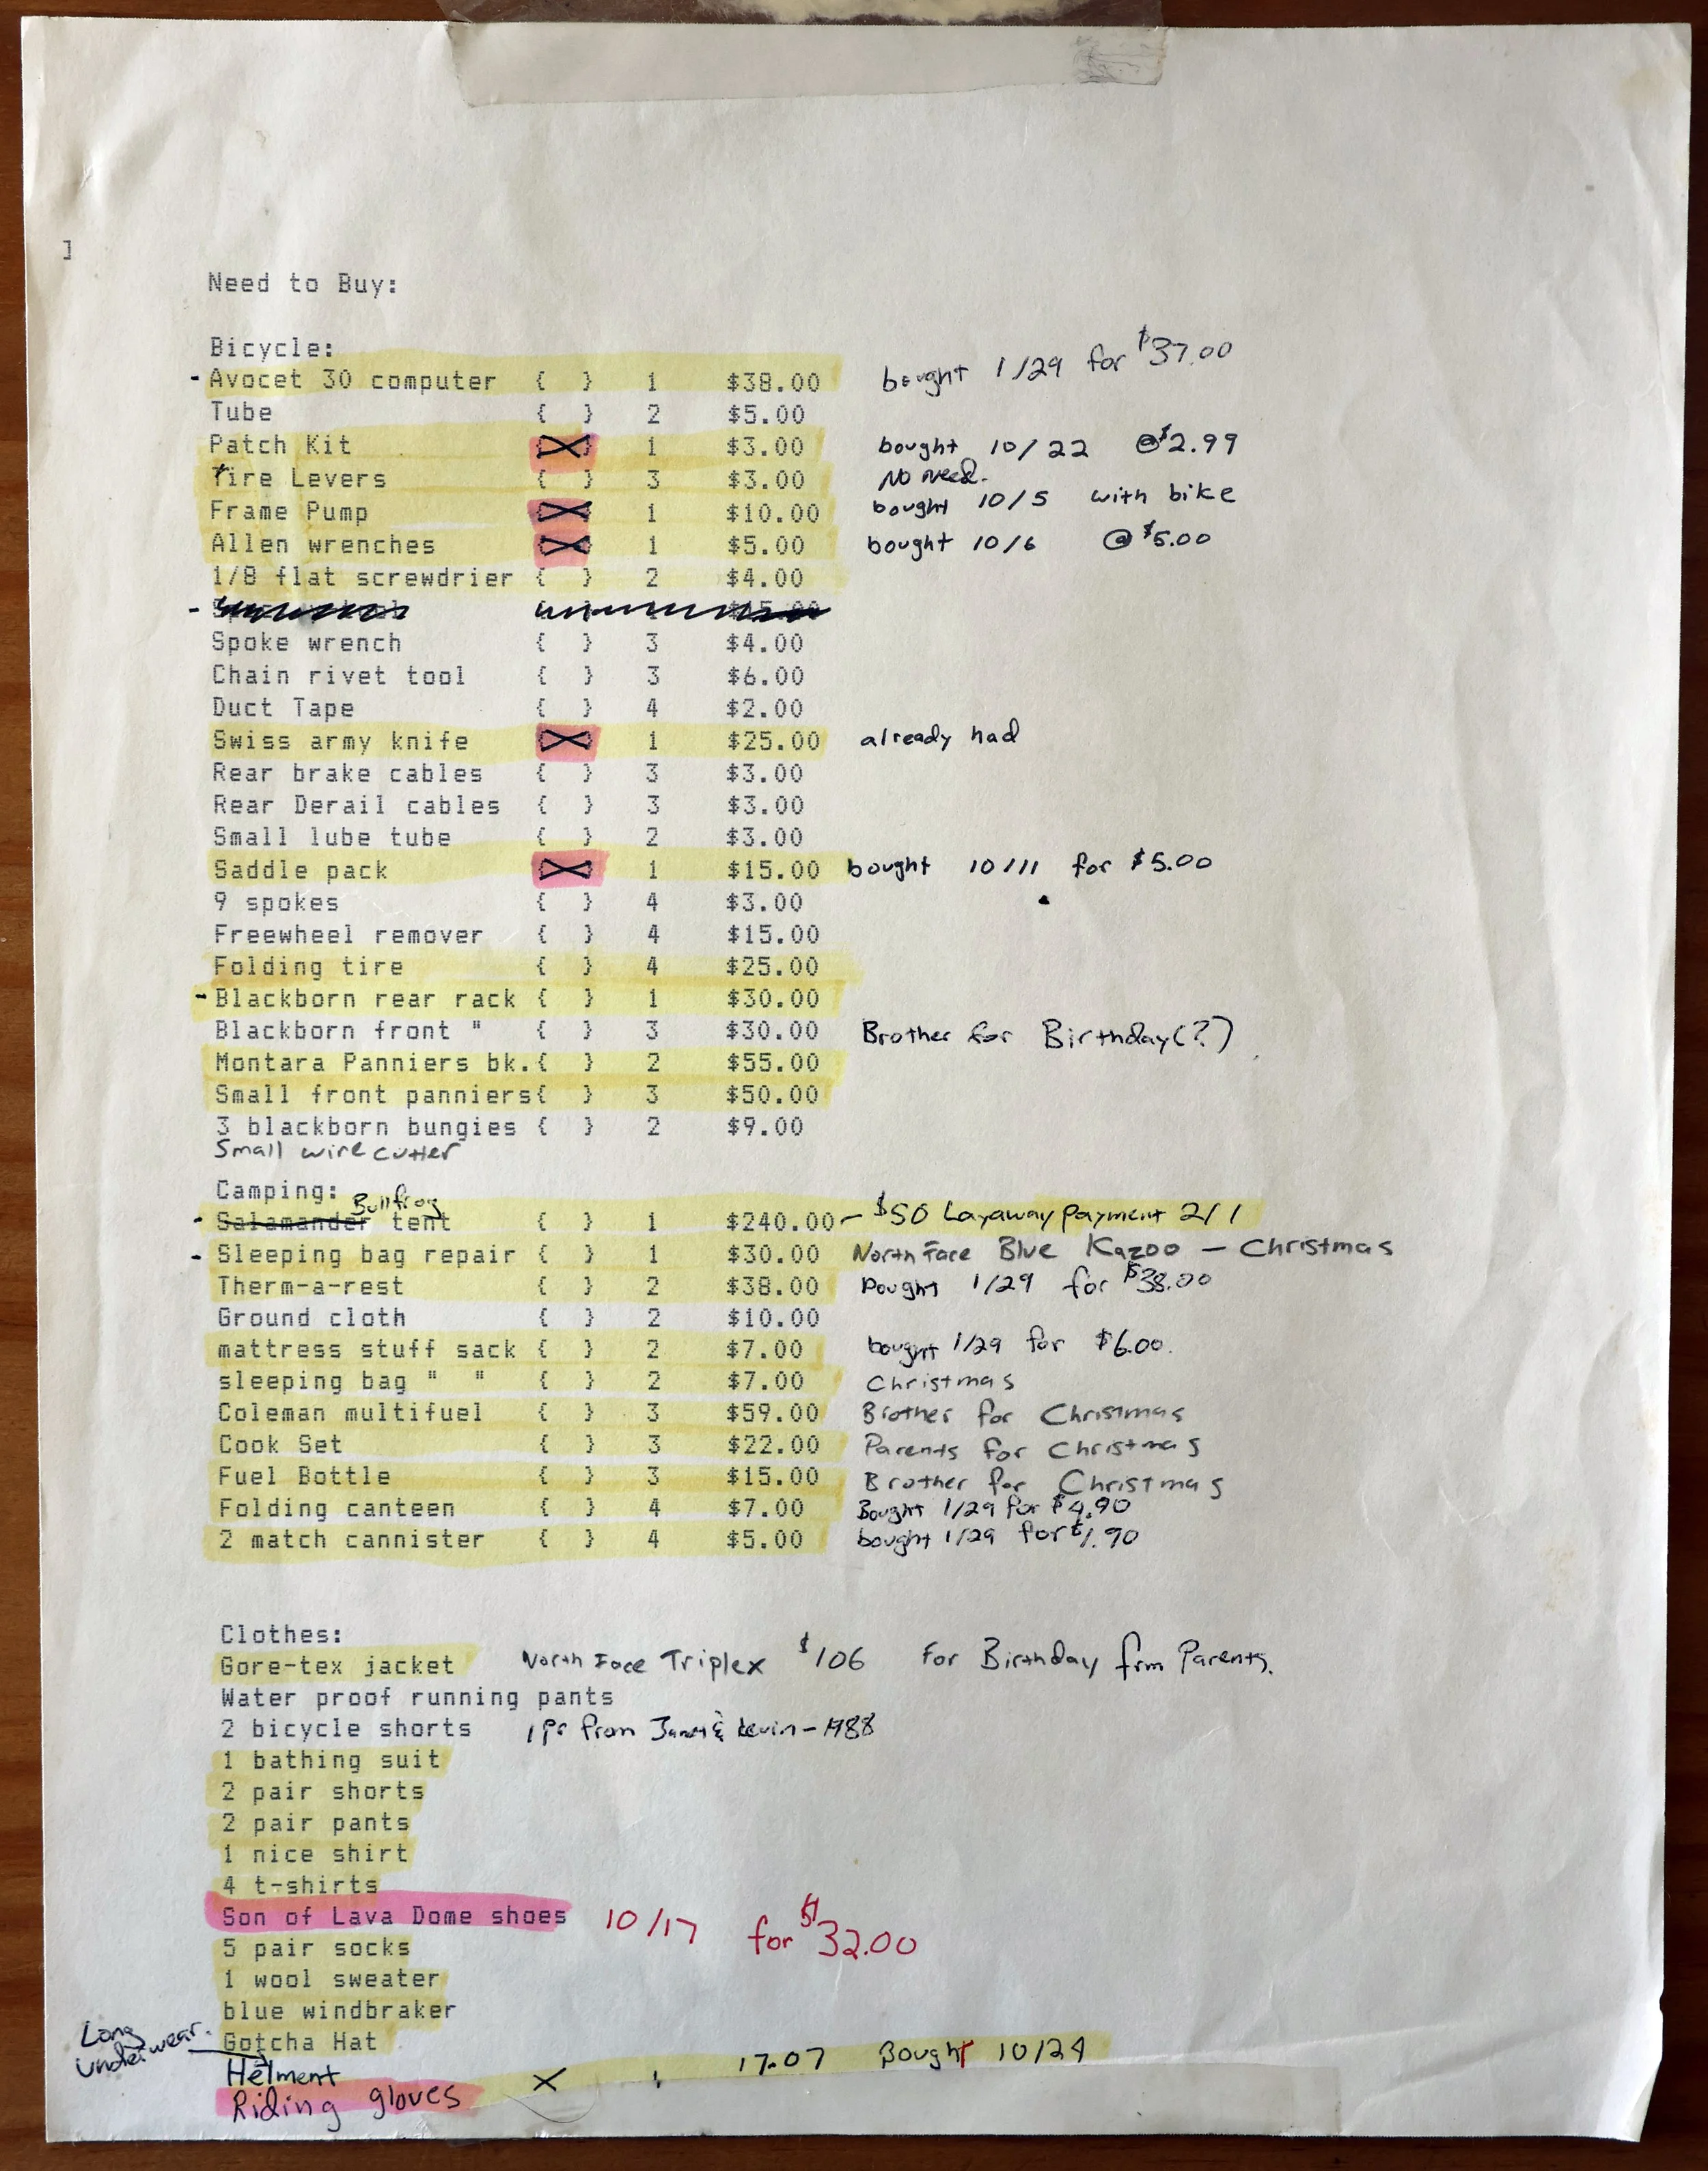 ]
Need to Buy:
Bicycle:
- Avocet 30 computer { } 1 $38.00 bought 1/29 for $37.00
Tube { } 2 $5.00
Patch Kit {X} 1 $3.00 bought 10/22 @$2.99
Tire Levers { } 3 $3.00 No need.
Frame Pump {X} 1 $10.00 bought 10/5 with bike
Allen wrenches {X} 1 $5.00 bought 10/6 @ $5.00
1/8 flat screwdrier { } 2 $4.00
-
Spoke wrench { } 3 $4.00
Chain rivet tool { } 3 $6.00
Duct Tape { } 4 $2.00
Swiss army knife {X} 1 $25.00 already had
Rear brake cables { } 3 $3.00
Rear Derail cables { } 3 $3.00
Small lube tube { } 2 $3.00
Saddle pack {X} 1 $15.00 bought 10/11 for $5.00
9 spokes { } 4 $3.00
Freewheel remover { } 4 $15.00
Folding tire { } 4 $25.00
- Blackborn rear rack { } 1 $30.00
Blackborn front " { } 3 $30.00 Brother for Birthday(?)
Montara Panniers bk.{ } 2 $55.00
Small front panniers{ } 3 $50.00
3 blackborn bungies { } 2 $9.00
Small wire cutter
Camping:
Bullfrog
- Salamander tent { } 1 $240.00 - $50 Layaway payment 2/1
- Sleeping bag repair { } 1 $30.00 North Face Blue Kazoo - Christmas
Therm-a-rest { } 2 $38.00 Bought 1/29 for $38.00
Ground cloth { } 2 $10.00
mattress stuff sack { } 2 $7.00 bought 1/29 for $6.00.
sleeping bag " " { } 2 $7.00 Christmas
Coleman multifuel { } 3 $59.00 Brother for Christmas
Cook Set { } 3 $22.00 Parents for Christmas
Fuel Bottle { } 3 $15.00 Brother for Christmas
Folding canteen { } 4 $7.00 Bought 1/29 for $4.90
2 match cannister { } 4 $5.00 bought 1/29 for $1.90
Clothes:
Gore-tex jacket North Face Triplex $106 For Birthday frm Parents.
Water proof running pants
2 bicycle shorts 1 pr from & Kevin - 1988
1 bathing suit
2 pair shorts
2 pair pants
1 nice shirt
4 t-shirts
Son of Lava Dome shoes 10/17 for $32.00
5 pair socks
1 wool sweater
blue windbraker
Gotcha Hat
Long underwear.
Helment X 1 17.07 Bought 10/24
Riding gloves